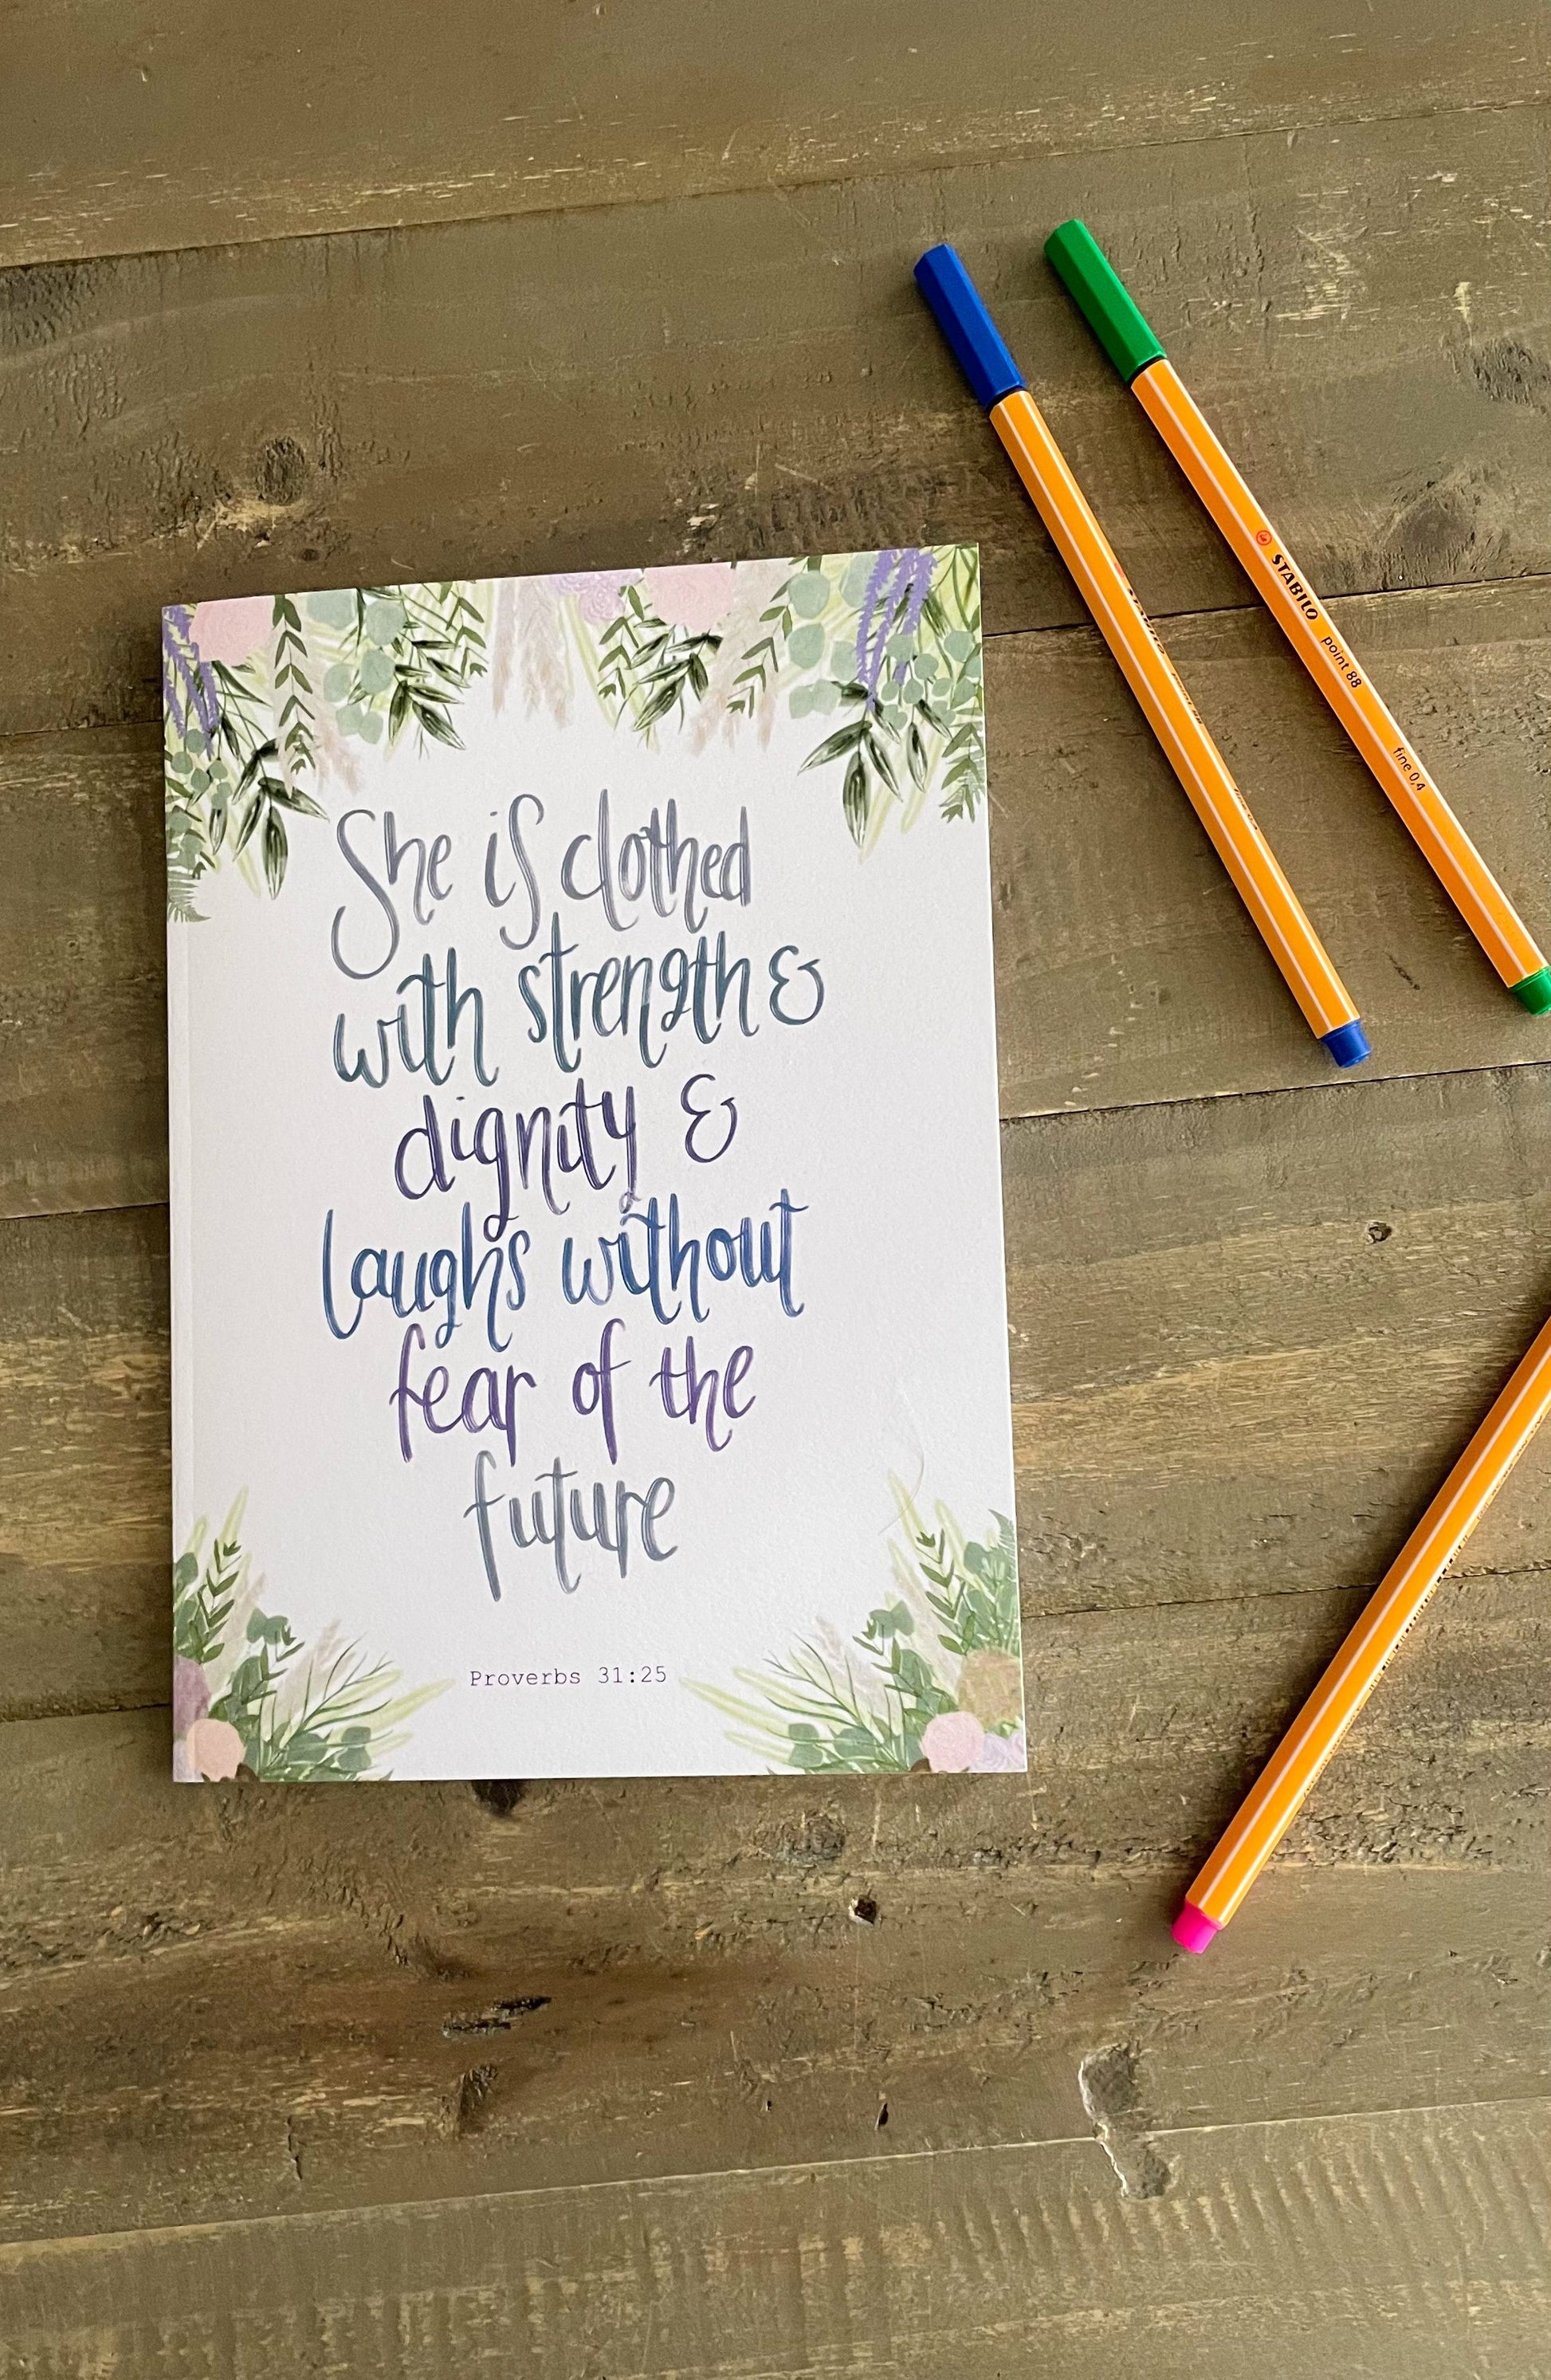 She is clothed
with strength &
dignity &
laughs without
fear of the
future
Proverbs 31:25
STABILO point 88 fine 0,4